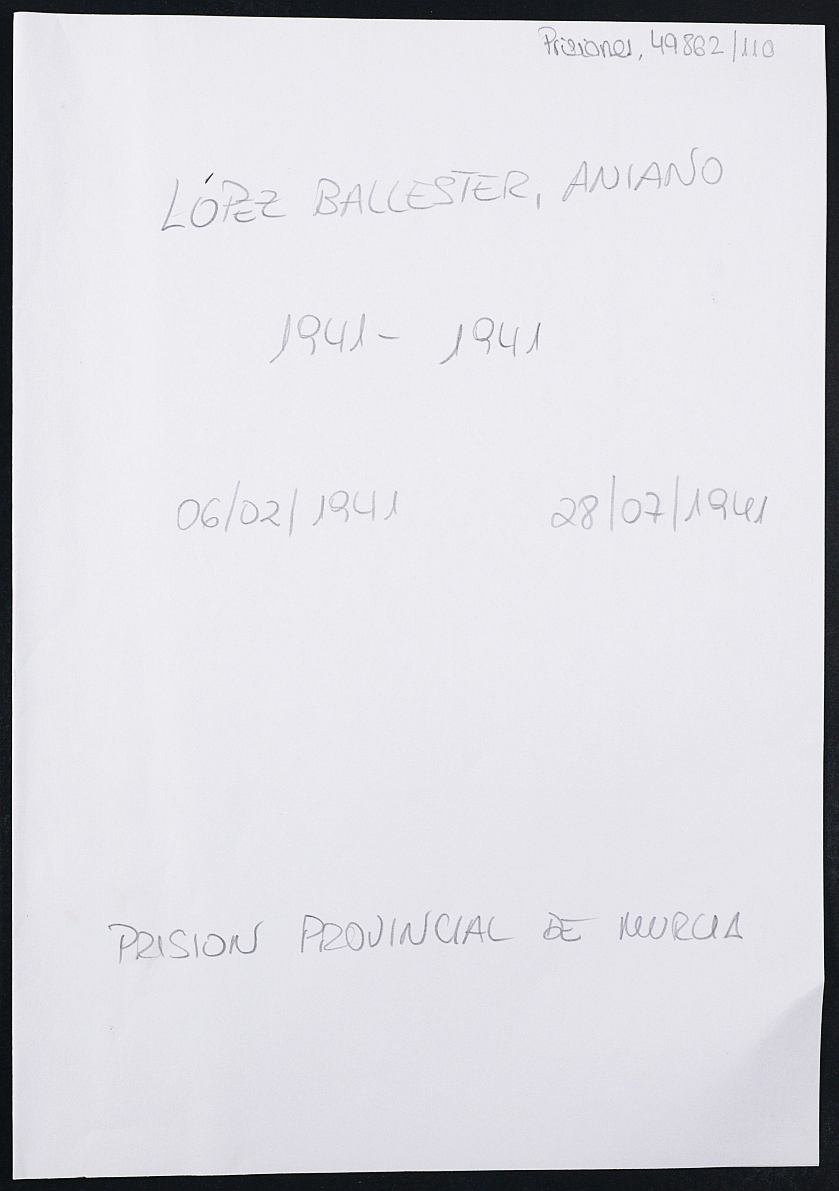 Prisiones, 49862/110
LÓPEZ BALLESTER, ANIANO
1941- 1941
06/02/1941 28/07/1941
PRISION PROVINCIAL DE MURCIA